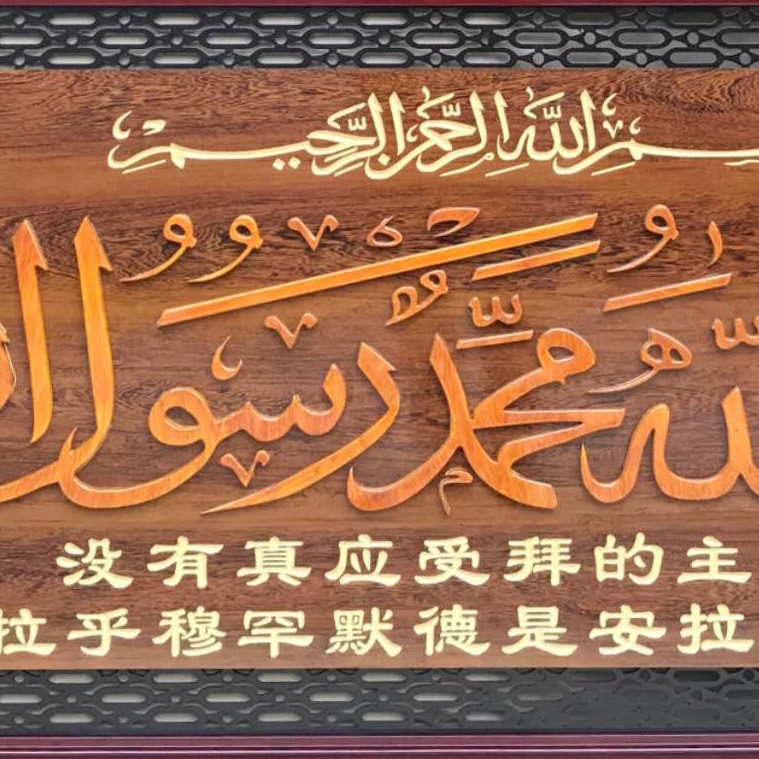 بسم الله الرحمن الرحيم
الله محمد رسول ا
没有真应受拜的主
拉乎穆罕默德是安拉